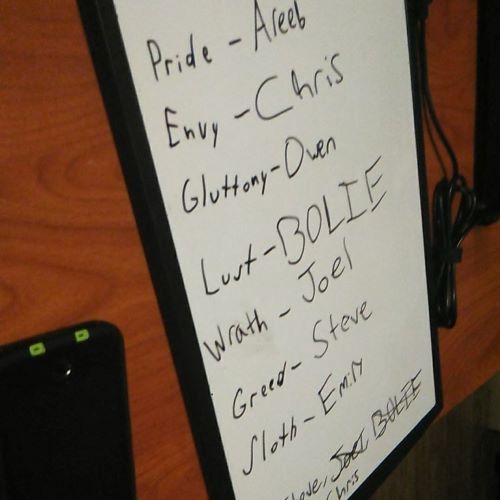 Pride - Areeb
Envy - Chris
Gluttony - Owen
Lust - BOLIE
Wrath - Joel
Greed - Steve
Sloth - Emily
Joel BOLIE
Chris